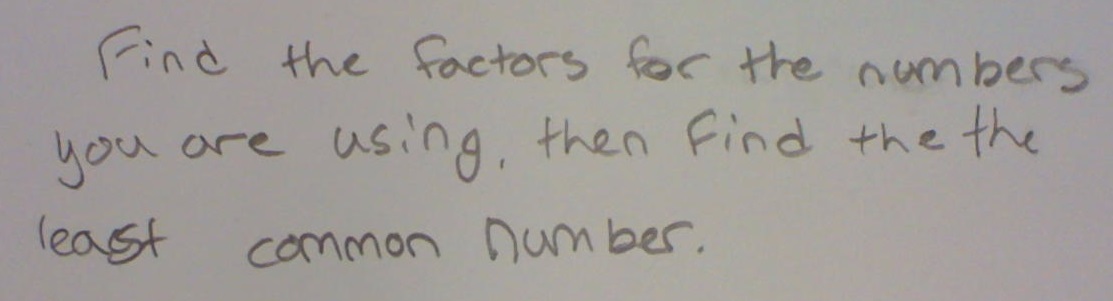 Find the factors for the numbers
you are using, then find the the
least common number.